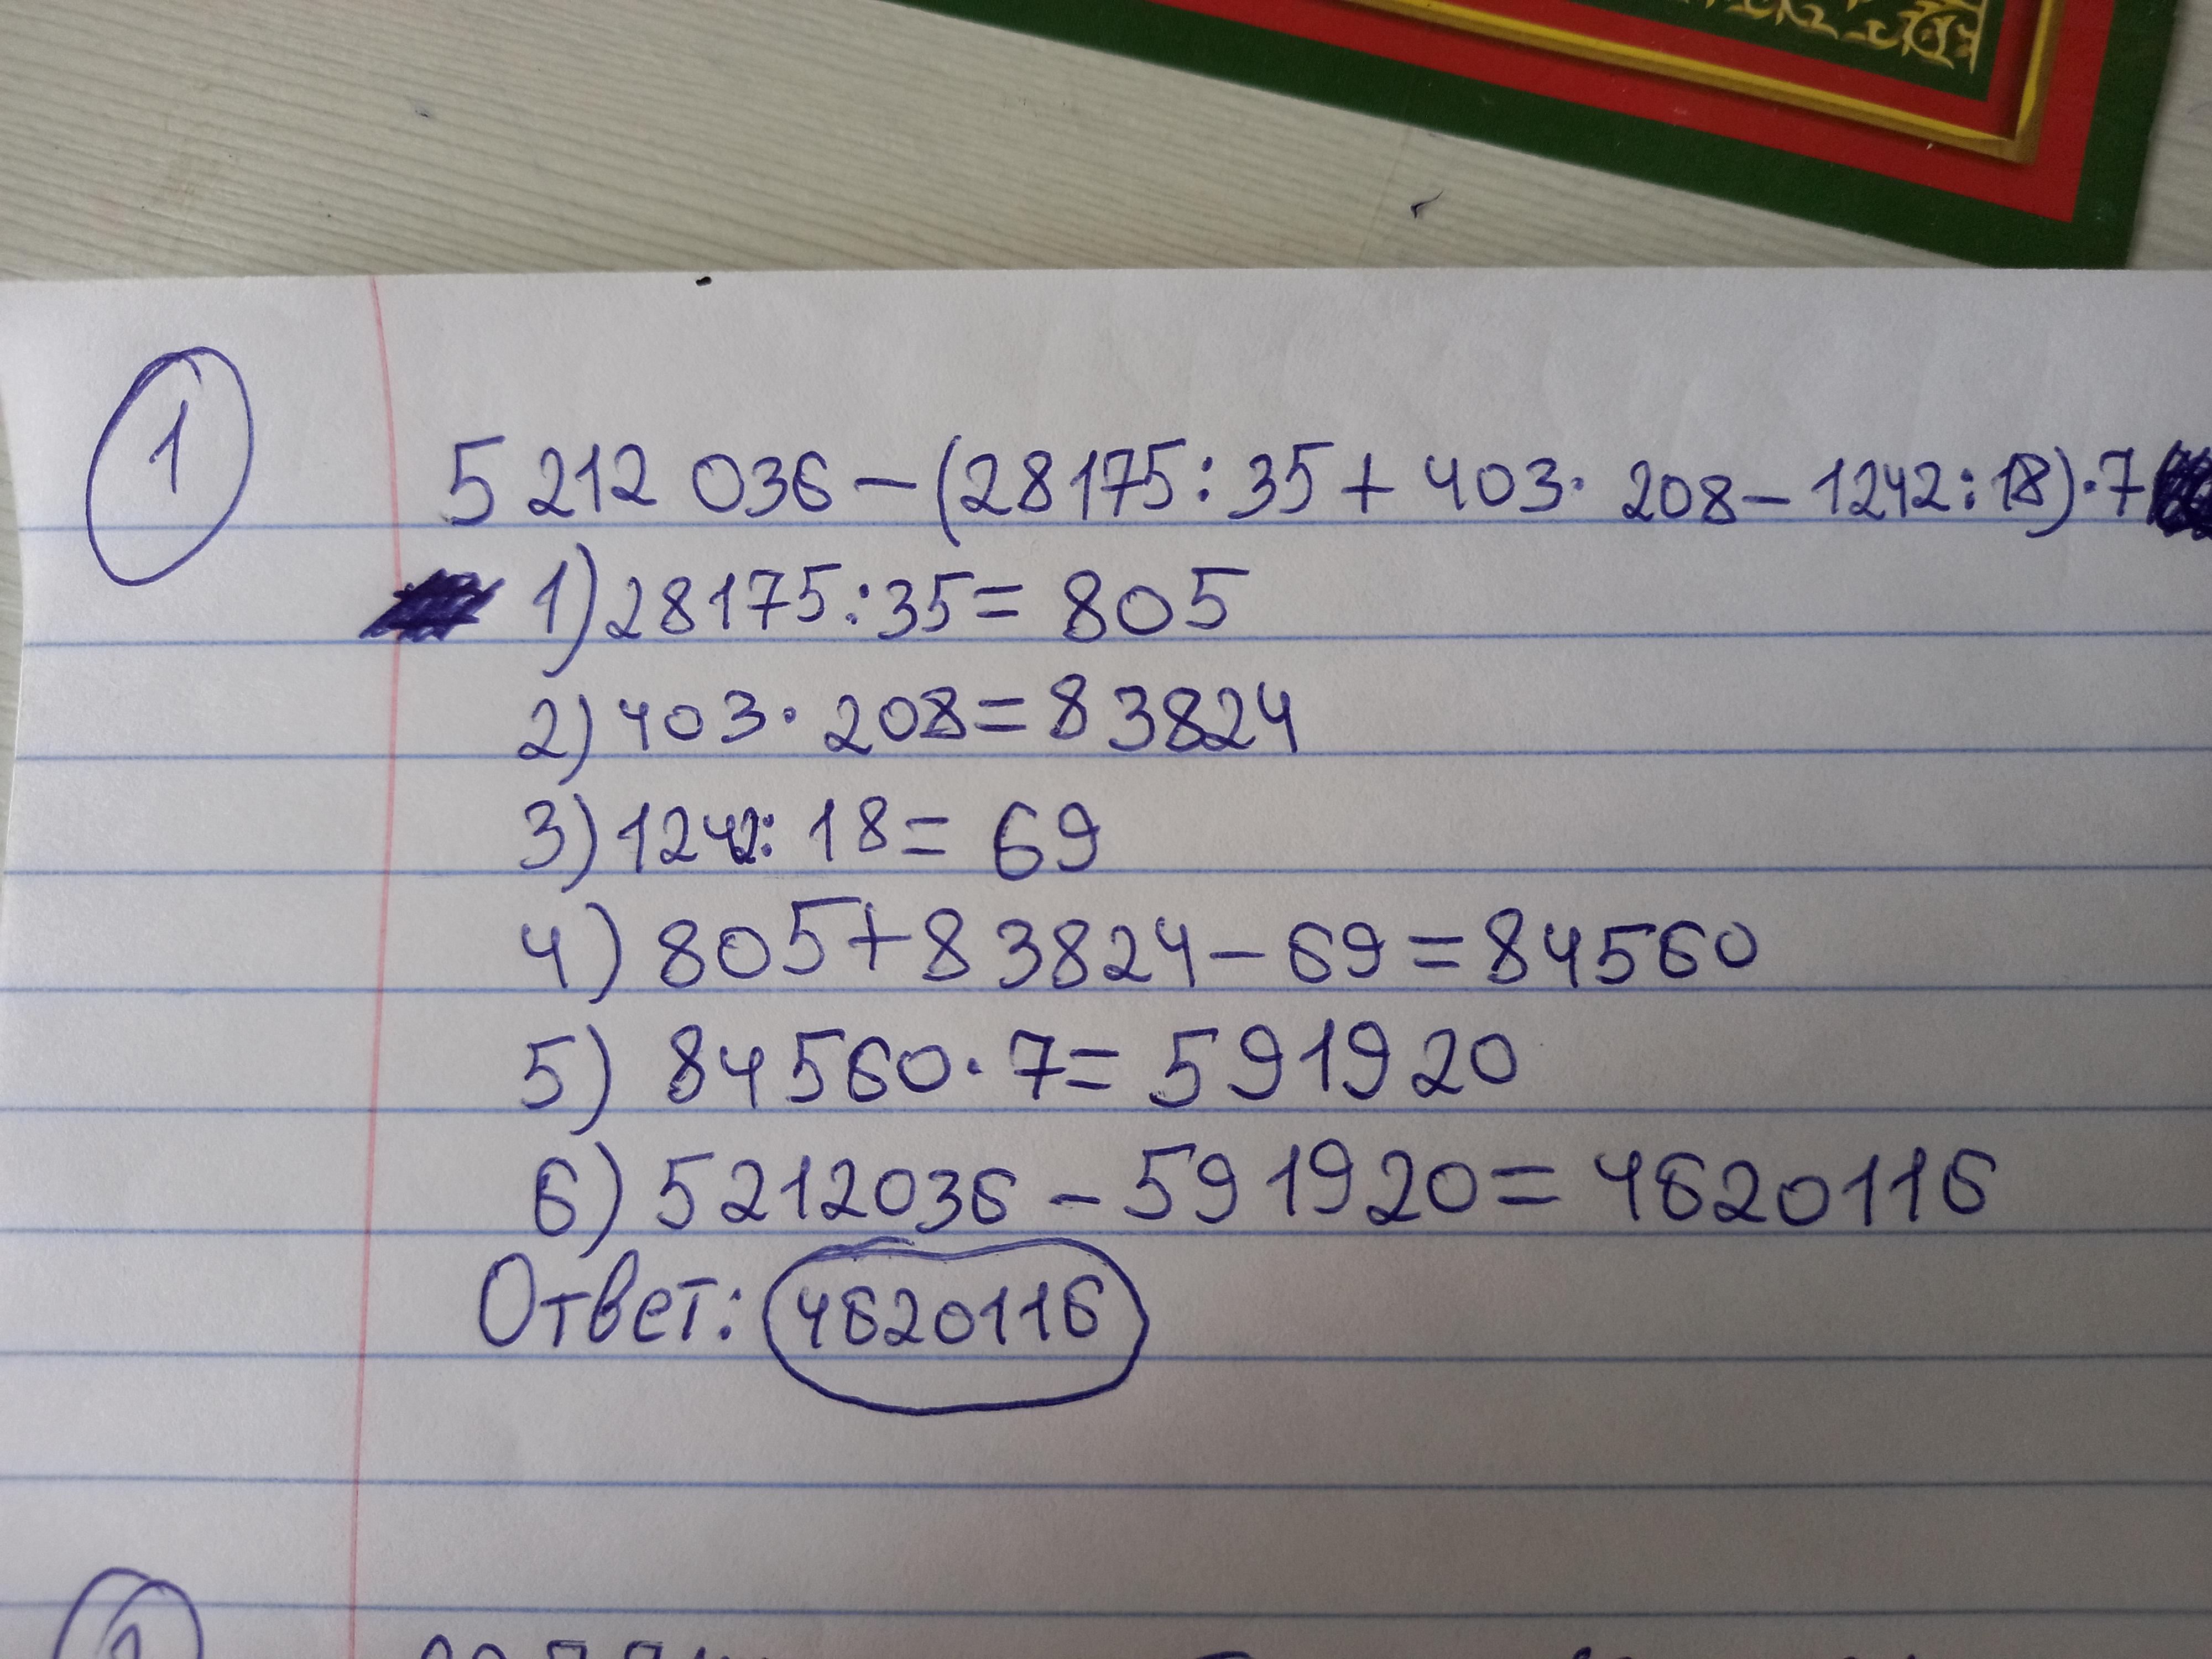 1
5 212 036 – (28175 : 35 + 403 · 208 – 1242 : 18) · 7
1) 28175 : 35 = 805
2) 403 · 208 = 83824
3) 1242 : 18 = 69
4) 805 + 83824 – 69 = 84560
5) 84560 · 7 = 591920
6) 5212036 – 591920 = 4620116
Ответ: 4620116